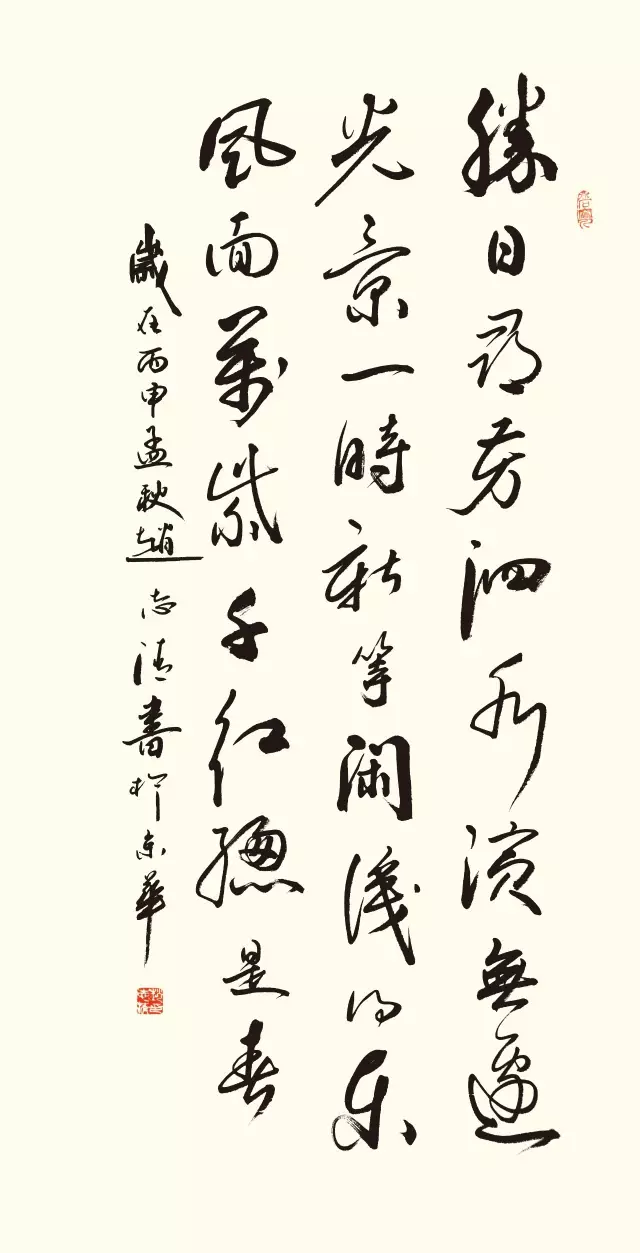 勝日尋芳泗水濱無邊
光景一時新等閑識得東
風面萬紫千紅總是春
歲在丙申孟秋趙志清書於京華